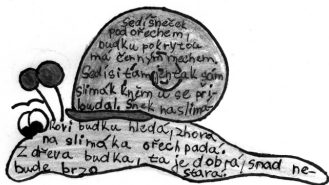 Sedí šneček
pod ořechem,
budku pokrytou
má černým mechem.
Sedí si tam jen tak sám
slimák k něm u se při
budal. Šnek na slima-
kovi budku hledá, zhora
na slimáka ořech padá.
Z dřeva budka, ta je dobrá, snad ne-
bude brzo stará.